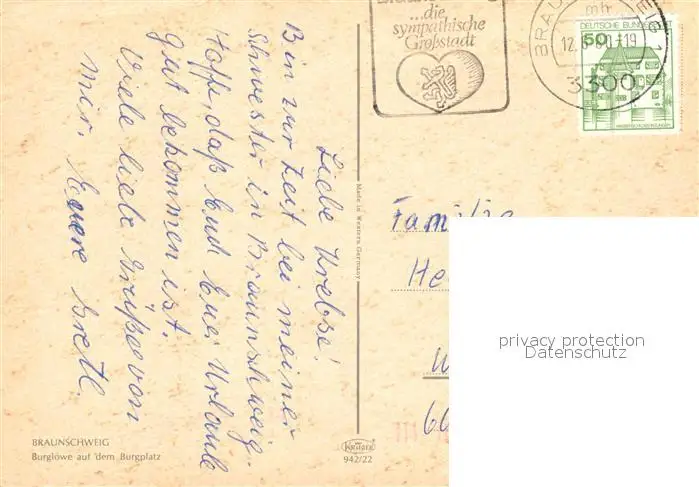 ...die
sympathische
Großstadt
mb
12.
19
3300
DEUTSCHE BUNDESPOST
50
Liebe Krebse!
Bin zur Zeit bei meiner
Schwester in Braunschweig.
Hoffe, daß Euch Euer Urlaub
gut bekommen ist.
Viele liebe Grüße von
mir, Euere Gretl.
Made in Western Germany
Familie
He
W
privacy protection
Datenschutz
BRAUNSCHWEIG
Burglöwe auf dem Burgplatz
KRÜGER
942/22